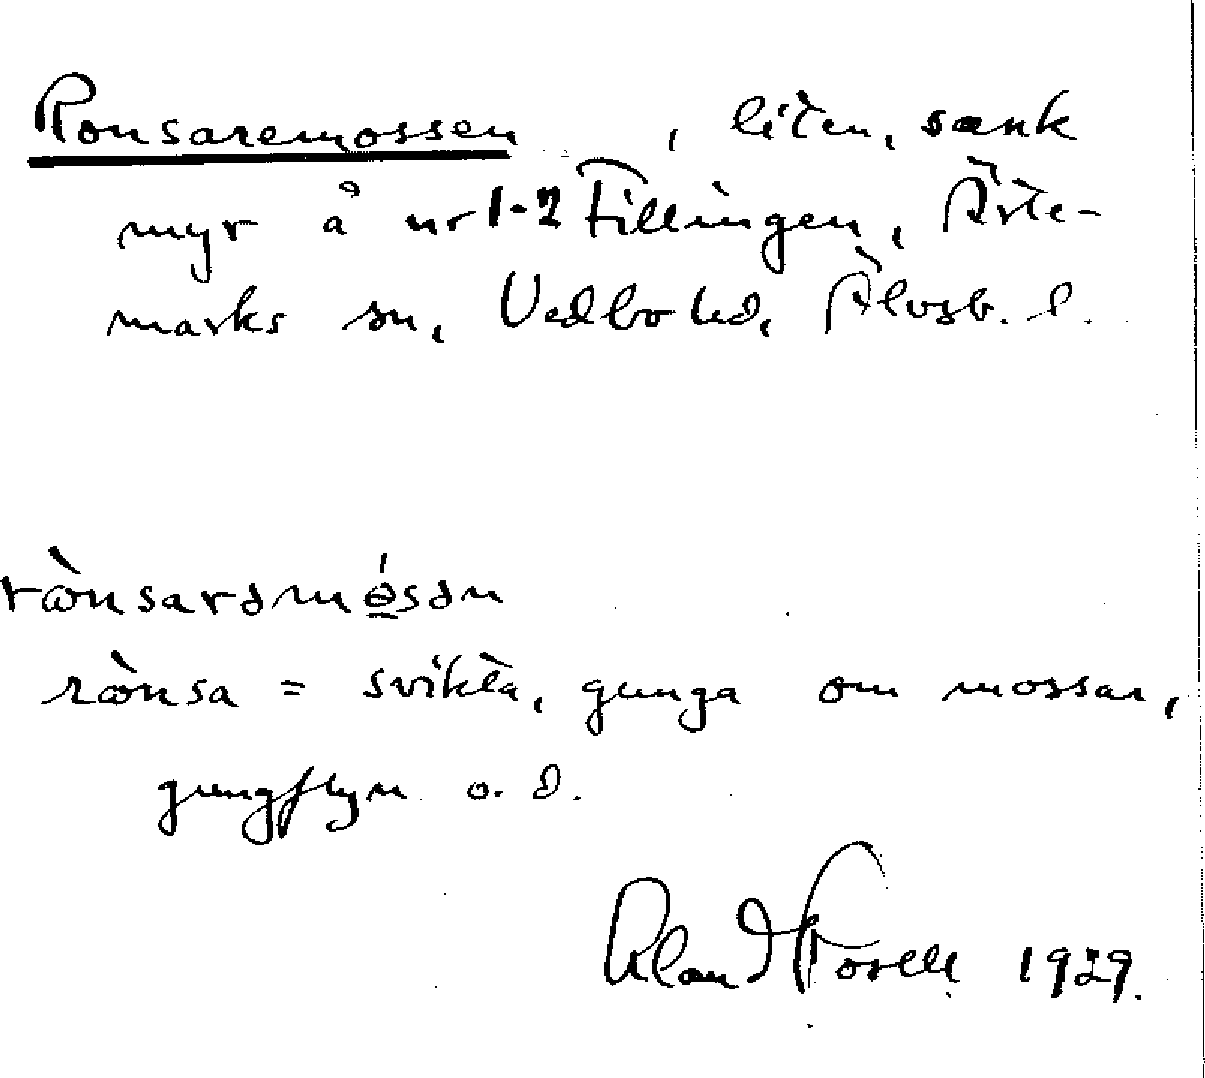 Ronsaremossen, liten, sank
myr å nr 1-2 Tillingen, Ärte-
marks sn, Vedbo hd, Älvsb. l.
rὼnsarəmós̠ən
rὼnsa = svikta, gunga om mossar,
gungflyn o. d.
1929.